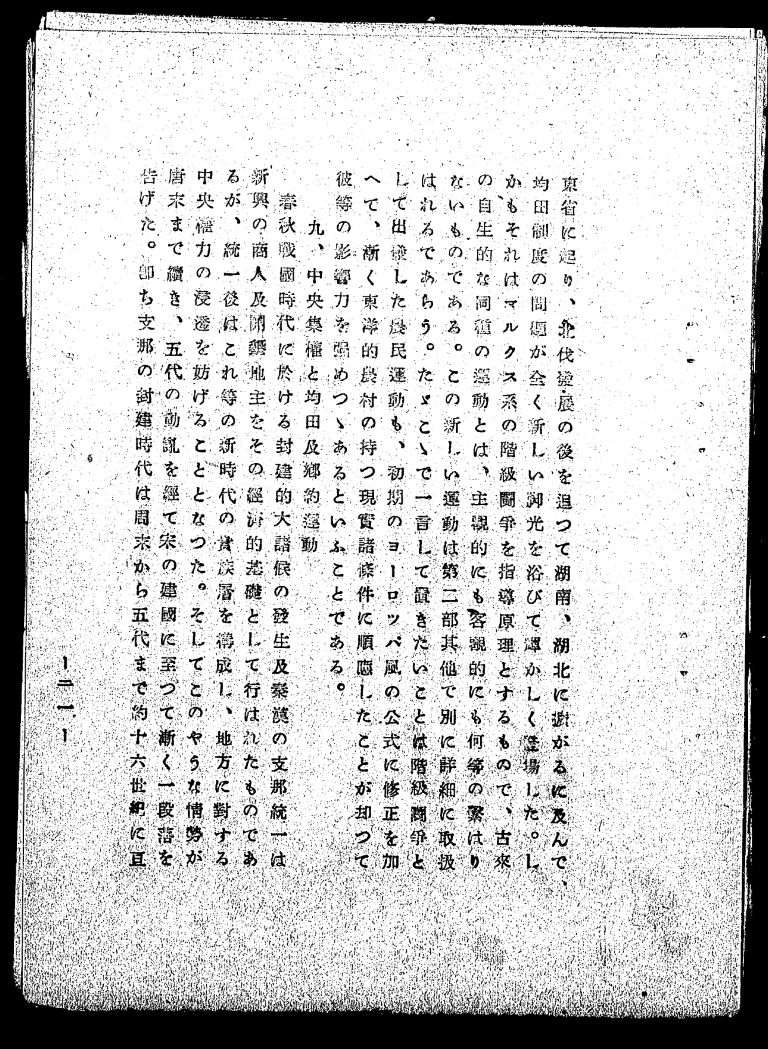 東省に起り、北伐發展の後を追つて湖南、湖北に擴がるに及んで、
均田制度の問題が全く新しい脚光を浴びて輝かしく登場した。し
かもそれはマルクス系の階級鬪爭を指導原理とするもので、古來
の自生的な同種の運動とは、主觀的にも客觀的にも何等の繋はり
ないものである。この新しい運動は第二部其他で別に詳細に取扱
はれるであらう。たゞこゝで一言して置きたいことは階級鬪爭と
して出發した農民運動も、初期のヨーロッパ風の公式に修正を加
へて、漸く東洋的農村の持つ現實諸條件に順應したことが却つて
彼等の影響力を强めつゝあるといふことである。
九、中央集權と均田及鄉約運動
春秋戰國時代に於ける封建的大諸侯の發生及秦漢の支那統一は
新興の商人及開墾地主をその經濟的基礎として行はれたものであ
るが、統一後はこれ等の新時代の貴族層を構成し、地方に對する
中央權力の浸透を妨げることとなつた。そしてこのやうな情勢が
唐末まで續き、五代の動亂を經て宋の建國に至つて漸く一段落を
告げた。卽ち支那の封建時代は周末から五代まで約十六世紀に亘
—二一—